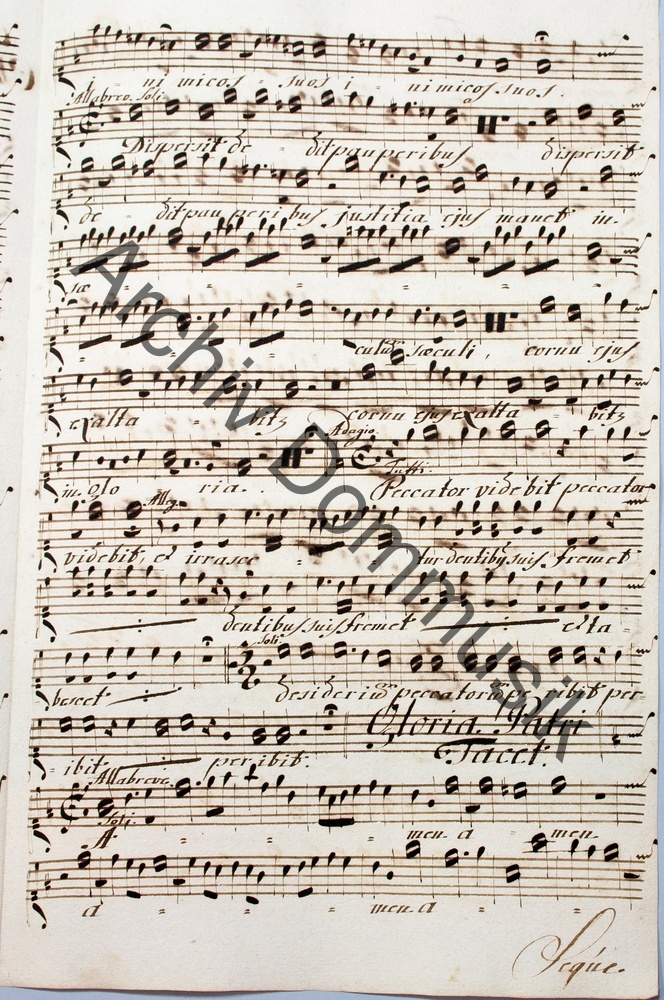 i - ni micos - suos i - ni micos suos.
Allabreve. Soli.
Dispersit de - dit pauperibus dispersit
de - dit pau peri bus justitia ejus manet in.
sæ - - - - -
- - - culum sæculi, cornu ejus
exalta - bitz cornu ejus exalta - bitz
Adagio.
Tutti.
in glo - ria. Peccator videbit peccator
Allg.
videbit, et irrasce - - tur dentibus suis fremet
dentibus suis fremet et ta -
Soli.
bescet desideriū peccatorū pe ribit per -
- ibit peribit. Gloria Patri
Tacet.
Allabreve.
Soli.
A - - men. a - men.
a - - men. A - -
Seque.
Archiv Dommusik